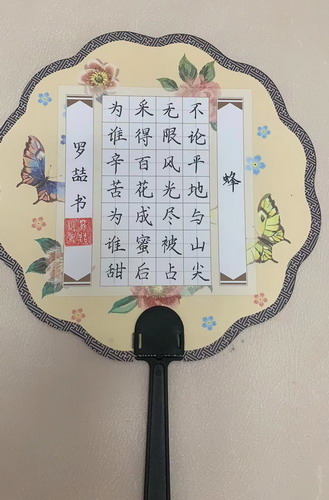 蜂
不论平地与山尖
无限风光尽被占
采得百花成蜜后
为谁辛苦为谁甜
罗喆书